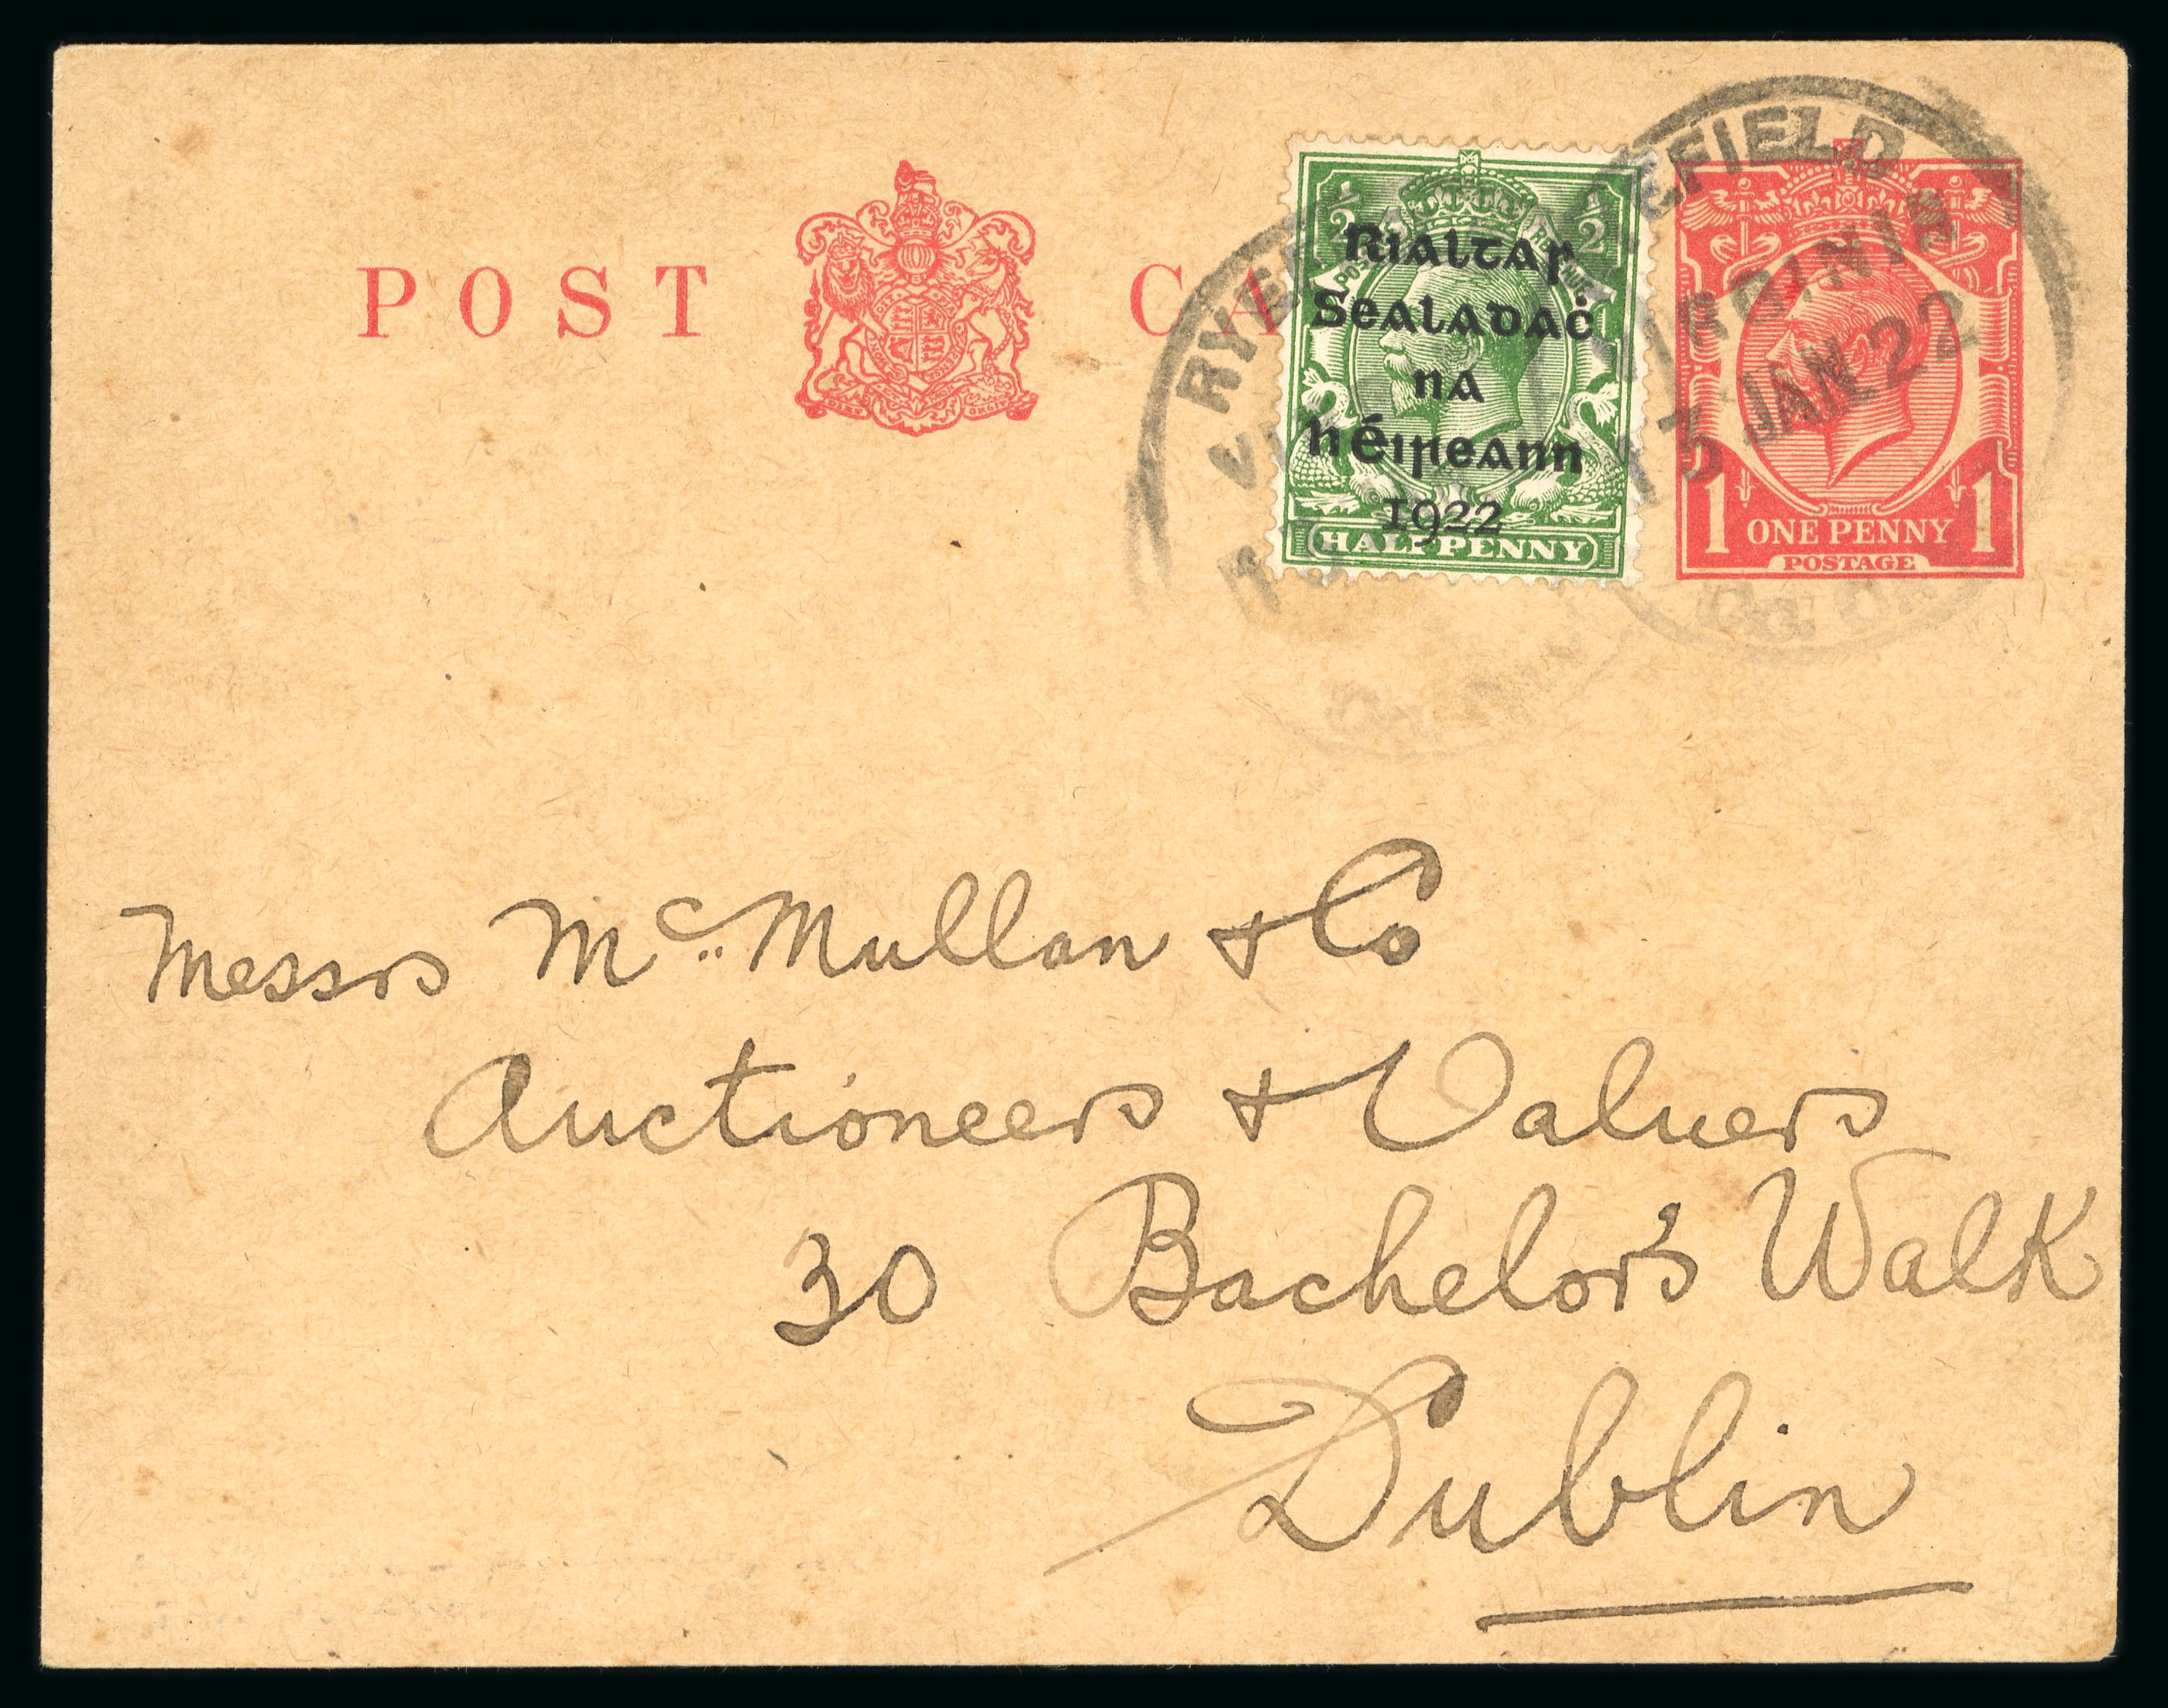 POST CA
½ ½
Rialtas
Sealadaċ
na
hÉireann
1922
HALFPENNY
RYE EFIELD
VIRGINIA
13 JAN 22
1 ONE PENNY 1
POSTAGE
Messrs Mc Mullan & Co
Auctioneers & Valuers
30 Bachelor's Walk
Dublin